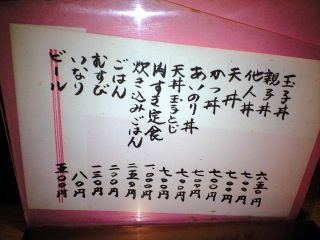 玉子丼 六五〇円
親子丼 七〇〇円
他人丼 七〇〇円
天丼 七〇〇円
かつ丼 七〇〇円
あいのり丼 七〇〇円
天丼玉子とじ 七〇〇円
肉すき定食 一,〇〇〇円
炊き込みごはん 二五〇円
ごはん 二〇〇円
むすび 一三〇円
いなり 八〇円
ビール 五〇〇円